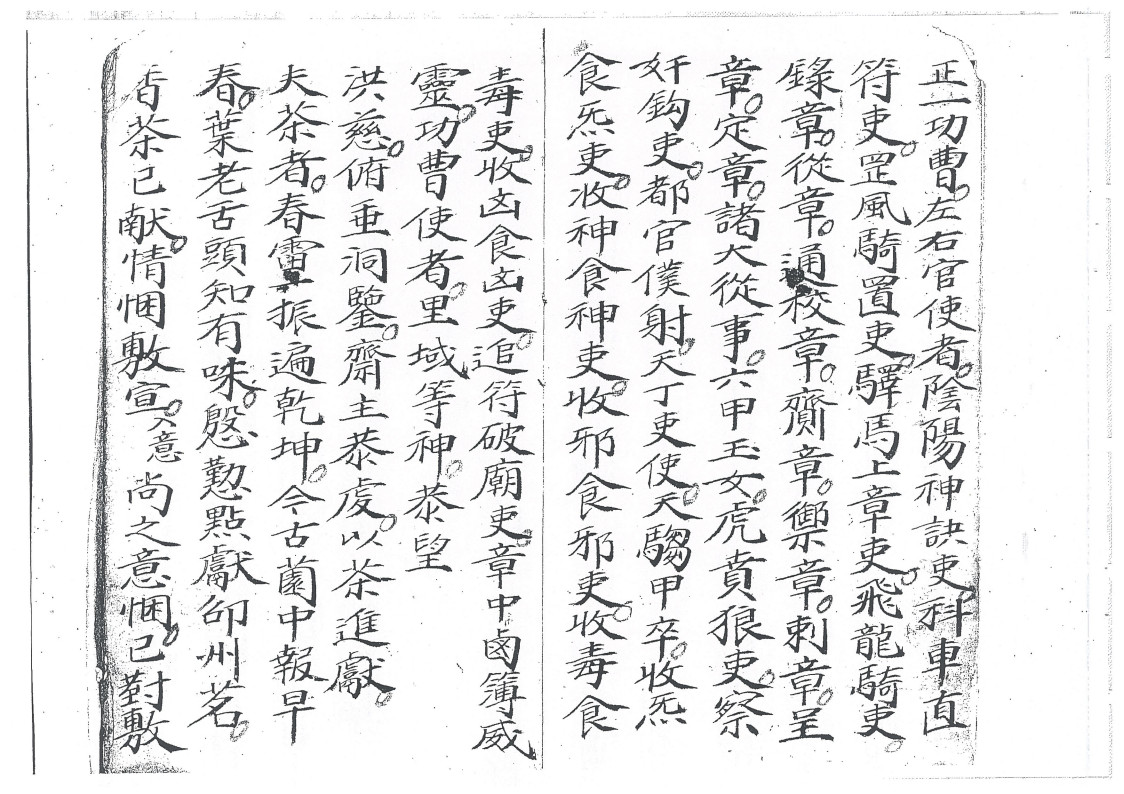 正一功曹。左右官使者。陰陽神訣吏。科車直
符吏。罡風騎置吏。驛馬上章吏。飛龍騎吏。
錄章。從章。通校章。齎章。禦章。刺章。呈
章。定章。諸大從事。六甲玉女。虎賁狼吏。察
奸鈎吏。都官僕射。天丁吏使。天騶甲卒。收炁
食炁吏。收神食神吏。收邪食邪吏。收毒食
毒吏。收凶食凶吏。追符破廟吏。章中鹵簿威
靈。功曹使者。里域等神。恭望
洪慈。俯垂洞鑒。齋主恭虔。以茶進獻。
夫茶者。春雷振遍乾坤。今古薗中報早
春。葉老舌頭知有味。慇懃點獻卭州茗。
香茶已献。情悃敷宣。入意尚之意悃。已對敷